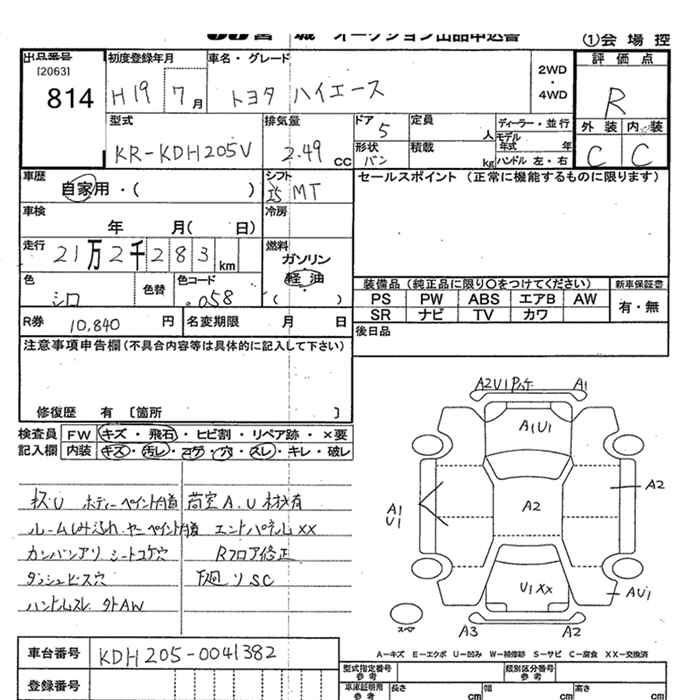 宮 城 オークション出品申込書
①会 場 控
出品番号
[2063]
814
初度登録年月
H19 7月
車名・グレード
トヨタ ハイエース
2WD
・
4WD
評 価 点
R
外 装 内 装
C C
型式
KR-KDH205V
排気量
2.49 cc
ドア
5
形状
バン
定員
人
積載
kg
ディーラー・並行
モデル年式 年
ハンドル 左・右
車歴
自家用・( )
シフト
I5 MT
セールスポイント (正常に機能するものに限ります)
車検
年 月( 日)
冷房
走行
21万2千283km
燃料
ガソリン
軽 油
( )
色
シロ
色替
色コード
058
装備品 (純正品に限り○をつけてください)
PS PW ABS エアB AW
SR ナビ TV カワ
新車保証書
有・無
R券 10,840 円
名変期限 月 日
後日品
注意事項申告欄(不具合内容等は具体的に記入して下さい)
修復歴 有 〔箇所 〕
検査員
記入欄
FW キズ・飛石・ヒビ割・リペア跡・×要
内装 キズ・汚レ・コゲ・穴・スレ・キレ・破レ
キズU ボディーペイント内有 荷室A.U 木材有
ルームしみ汚れ.ヤニ ペイント内有 エンドパネルXX
カンバンアリ シートコゲ穴 Rフロア修正
ダッシュビス穴 下廻りSC
ハンドルスレ 外AW
A2U1 A1
A1U1
A2
A2
A1
U1
U1XX
AU1
A3 A2
スペア
A―キズ E―エクボ U―凹み W―補修跡 S―サビ C―腐食 XX―交換済
車台番号 KDH205-0041382
登録番号
型式指定番号
参考
類別区分番号
参考
車庫証明用
参考
長さ cm 幅 cm 高さ cm